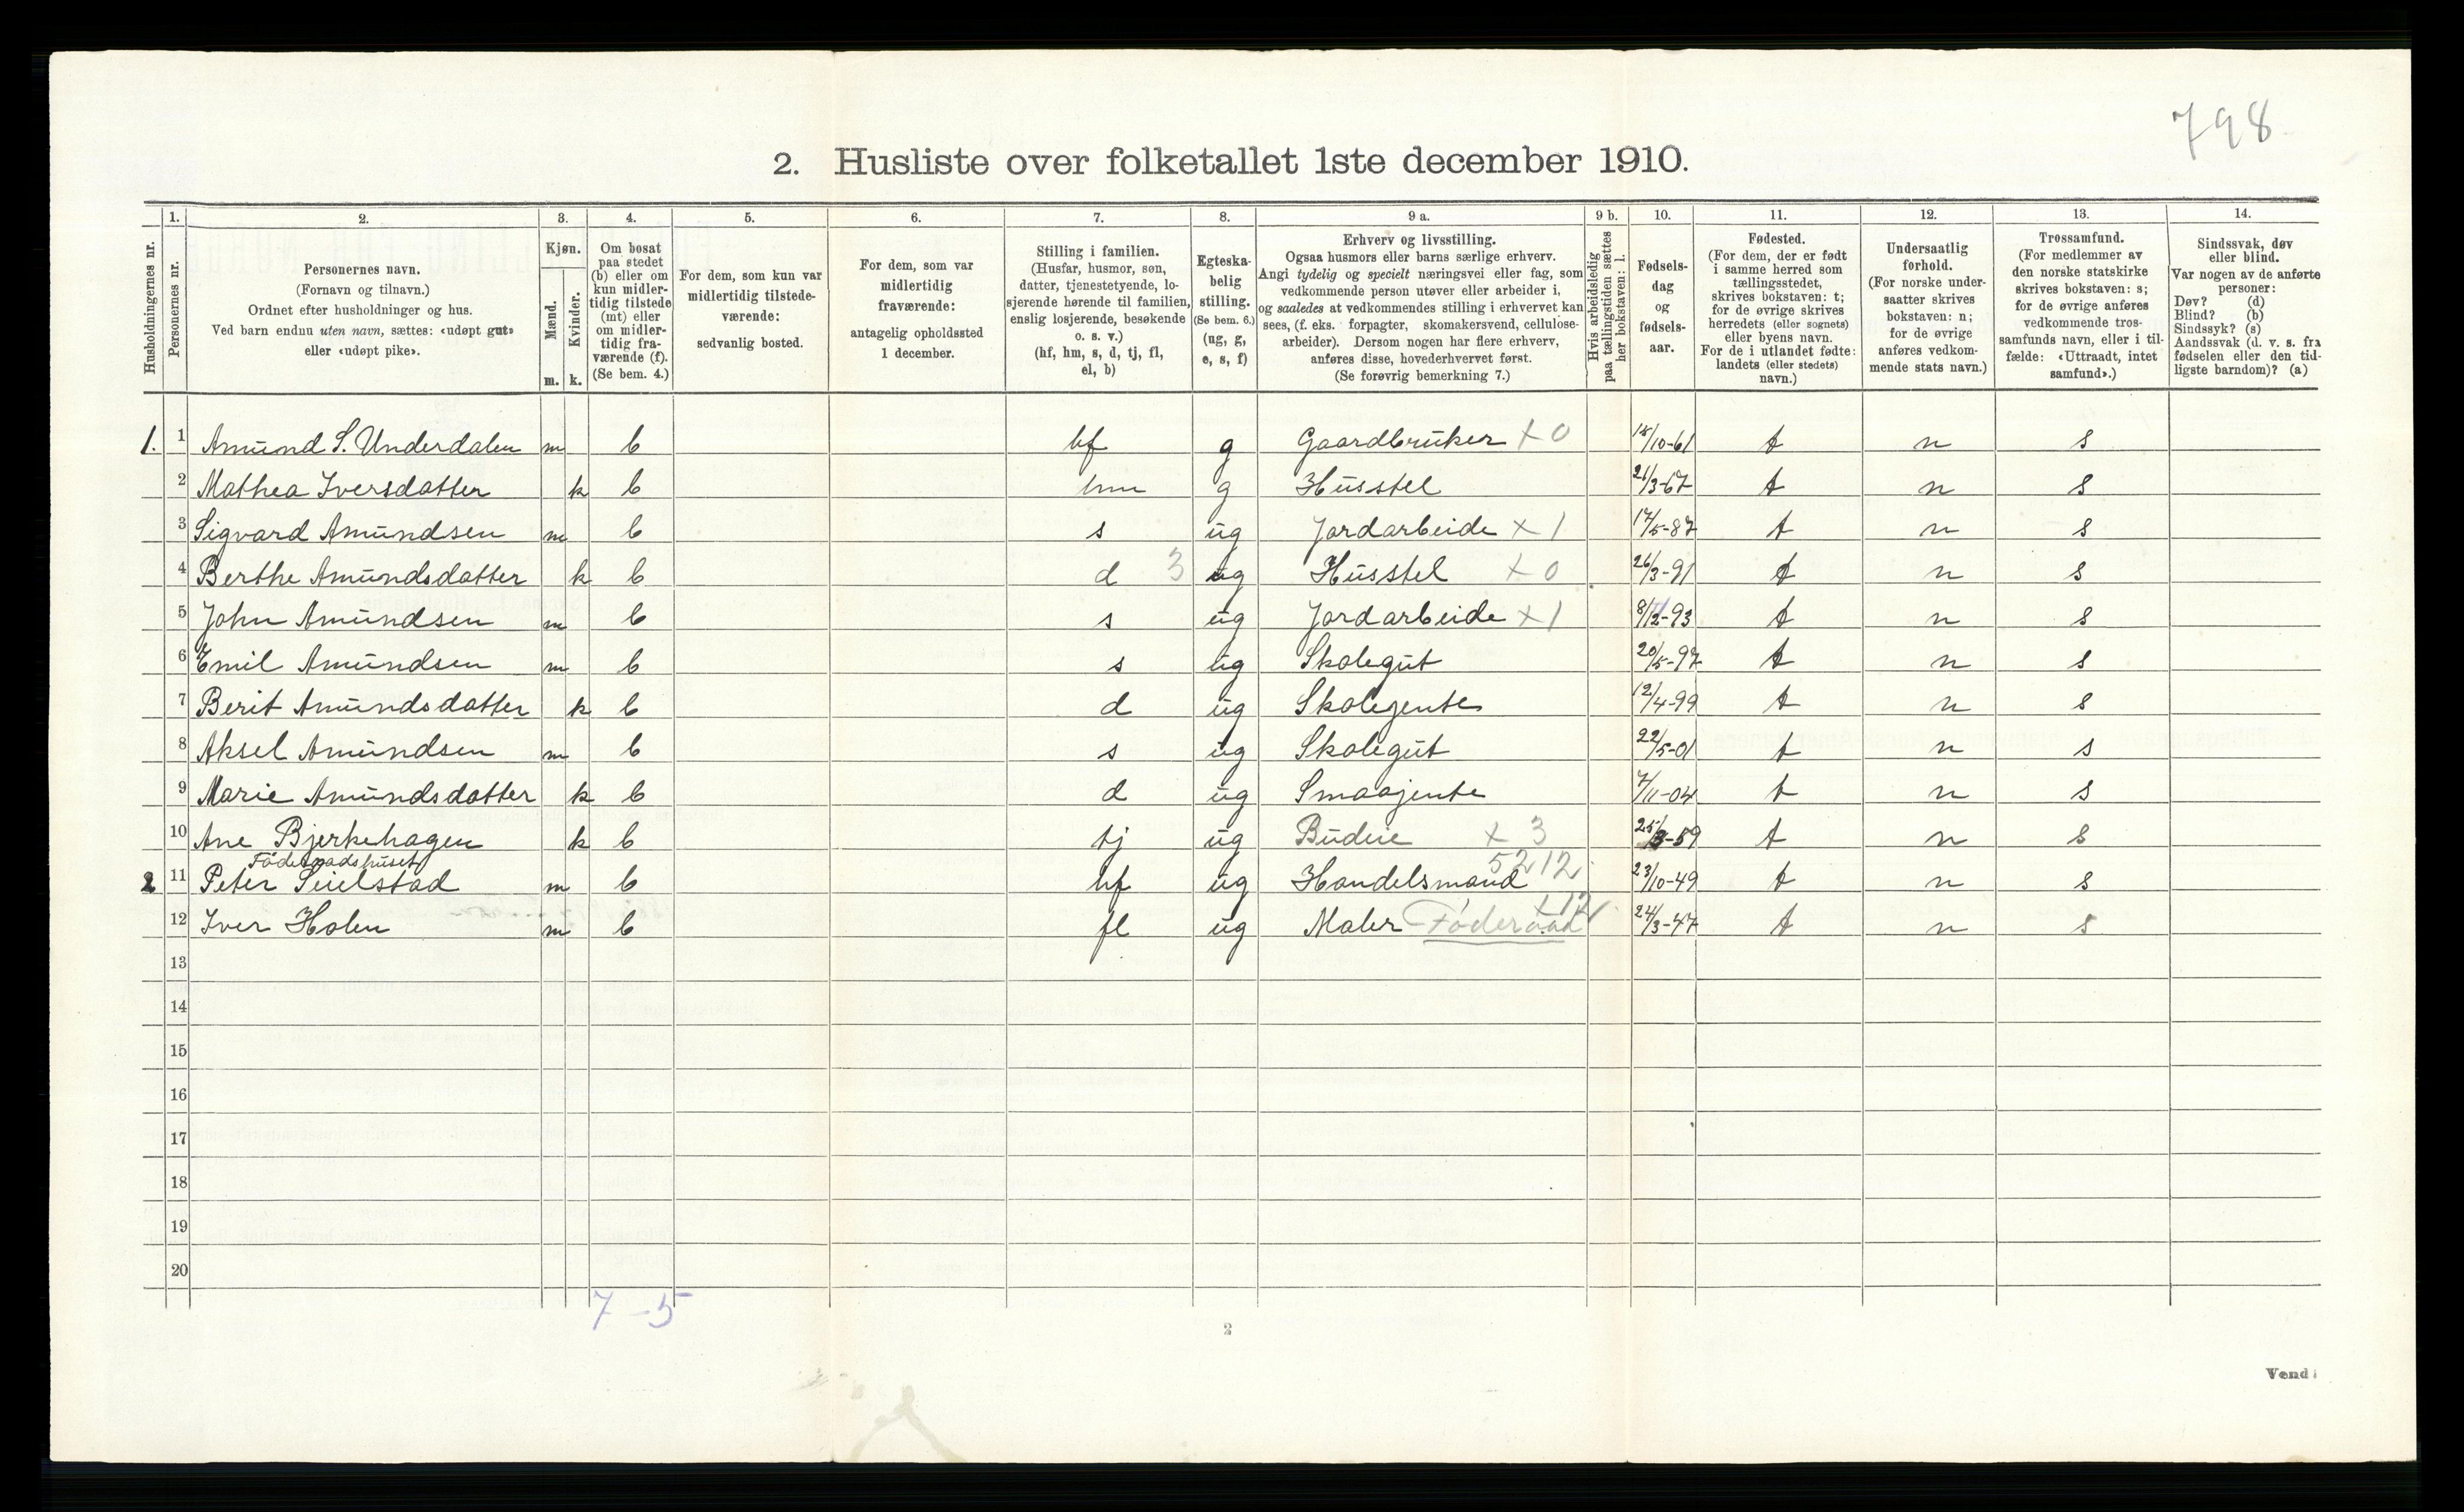 798
2. Husliste over folketallet 1ste december 1910.
Husholdningernes nr.
1.
Personernes nr.
2.
Personernes navn.
(Fornavn og tilnavn.)
Ordnet efter husholdninger og hus.
Ved barn endnu uten navn, sættes: «udøpt gut»
eller «udøpt pike».
3.
Kjøn.
Mænd.
Kvinder.
m. k.
4.
Om bosat
paa stedet
(b) eller om
kun midler-
tidig tilstede
(mt) eller
om midler-
tidig fra-
værende (f).
(Se bem. 4.)
5.
For dem, som kun var
midlertidig tilstede-
værende:
sedvanlig bosted.
6.
For dem, som var
midlertidig
fraværende:
antagelig opholdssted
1 december.
7.
Stilling i familien.
(Husfar, husmor, søn,
datter, tjenestetyende, lo-
sjerende hørende til familien,
enslig losjerende, besøkende
o. s. v.)
(hf, hm, s, d, tj, fl,
el, b)
8.
Egteska-
belig
stilling.
(Se bem. 6.)
(ug, g,
e, s, f)
9 a.
Erhverv og livsstilling.
Ogsaa husmors eller barns særlige erhverv.
Angi tydelig og specielt næringsvei eller fag, som
vedkommende person utøver eller arbeider i,
og saaledes at vedkommendes stilling i erhvervet kan
sees, (f. eks. forpagter, skomakersvend, cellulose-
arbeider). Dersom nogen har flere erhverv,
anføres disse, hovederhvervet først.
(Se forøvrig bemerkning 7.)
9 b.
Hvis arbeidsledig
paa tællingstiden sættes
her bokstaven: l.
10.
Fødsels-
dag
og
fødsels-
aar.
11.
Fødested.
(For dem, der er født
i samme herred som
tællingsstedet,
skrives bokstaven: t;
for de øvrige skrives
herredets (eller sognets)
eller byens navn.
For de i utlandet fødte:
landets (eller stedets)
navn.)
12.
Undersaatlig
forhold.
(For norske under-
saatter skrives
bokstaven: n;
for de øvrige
anføres vedkom-
mende stats navn.)
13.
Trossamfund.
(For medlemmer av
den norske statskirke
skrives bokstaven: s;
for de øvrige anføres
vedkommende tros-
samfunds navn, eller i til-
fælde: «Uttraadt, intet
samfund».)
14.
Sindssvak, døv
eller blind.
Var nogen av de anførte
personer:
Døv? (d)
Blind? (b)
Sindssyk? (s)
Aandssvak (d. v. s. fra
fødselen eller den tid-
ligste barndom)? (a)
1. 1 Amund S. Underdalen m b hf g Gaardbruker x 0 18/10-61 t n s
2 Mathea Iversdatter k b hm g Husstel 21/3-67 t n s
3 Sigvard Amundsen m b s ug Jordarbeide x 1 17/5-87 t n s
4 Berthe Amundsdatter k b d 3 ug Husstel x 0 26/3-91 t n s
5 John Amundsen m b s ug Jordarbeide x 1 8/12-93 t n s
6 Emil Amundsen m b s ug Skolegut 20/5-97 t n s
7 Berit Amundsdatter k b d ug Skolegente 12/4-99 t n s
8 Aksel Amundsen m b s ug Skolegut 22/5-01 t n s
9 Marie Amundsdatter k b d ug Smaajente 7/11-04 t n s
10 Ane Bjerkehagen k b tj ug Budeie x 3 25/3-59 t n s
Føderaadshuset 5212
2 11 Peter Seielstad m b hf ug Handelsmand 23/10-49 t n s
12 Iver Holen m b fl ug Maler Føderaad x 12 24/3-47 t n s
13
14
15
16
17
18
19
20
7 - 5
2
Vend!